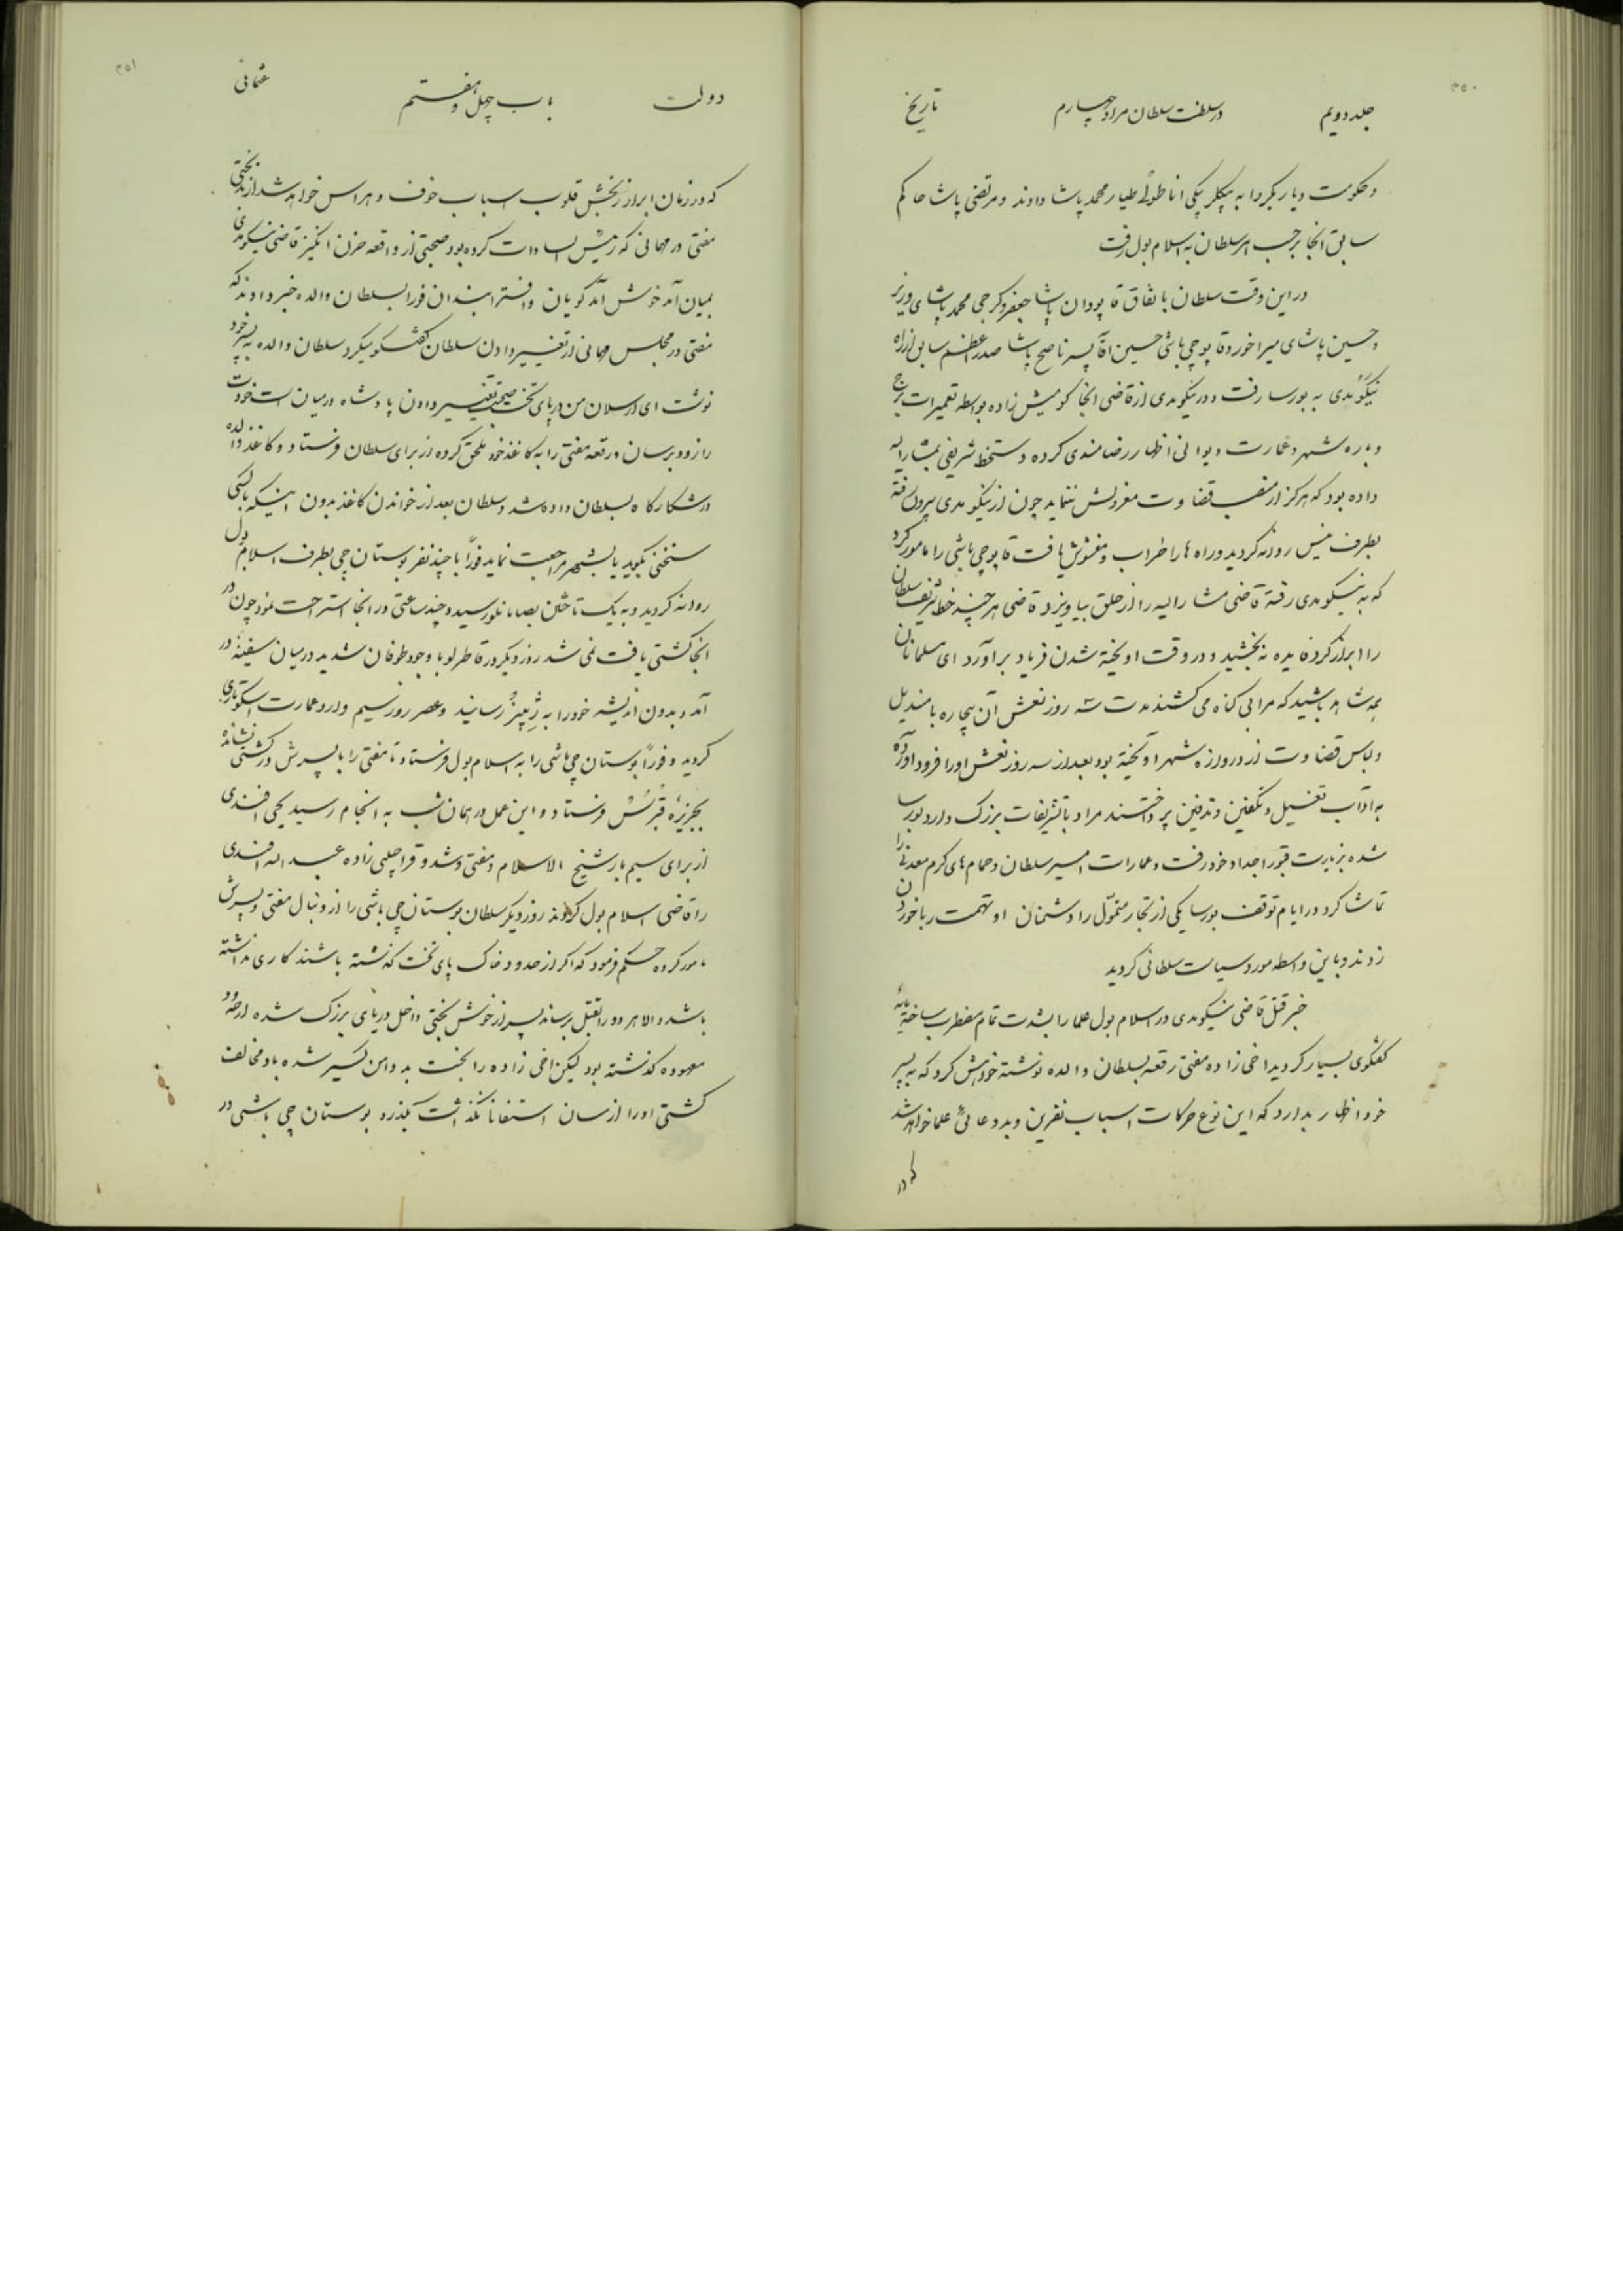 ۳۵۰
جلد دویم در سلطنت سلطان مراد چهارم تاریخ
و حکومت دیار بکر را به بیکلر بیکی اناطولی طیار محمد پاشا دادند و مرتضی پاشا حاکم
سابق انجا برحسب امر سلطان به اسلامبول رفت
در این وقت سلطان با تفاق قاپودان پاشا جعفر و کرجی محمد پاشای وزیر
و حسین پاشای میراخور و قاپوچی باشی حسین اقا پسر ناصح پاشا صدر اعظم سابق از راه
نیکومدی به بورسا رفت و در نیکومدی از قاضی انجا کومیش زاده بواسطه تعمیرات برج
و باره شهر و عمارت دیوانی اظهار رضامندی کرده دستخط شریفی بمشارالیه
داده بود که هرکز از منصب قضاوت معزولش ننماید چون از نیکومدی بیرون رفته
بطرف نیس روانه کردید و راه ها را خراب و مغشوش یافت قاپوچی باشی را مامور کرد
که به نیکومدی رفته قاضی مشارالیه را از حلق بیاویزد قاضی هرچند خط شریف سلطان
را ابراز کرد فایده نه بخشید و در وقت اویخته شدن فریاد براورد ای مسلمانان
همه شاهد باشید که مرا بی کناه می کشند مدت سه روز نعش آن بیچاره با مندیل
و لباس قضاوت از دروازه شهر اویخته بود بعد از سه روز نعش او را فرود اورده
به اداب تغسیل و تکفین و تدفین پرداختند مراد با تشریفات بزرک وارد بورسا
شده بزیارت قبور اجداد خود رفت و عمارات امیر سلطان و حمام های کرم معدنی را
تماشا کرد در ایام توقف بورسا یکی از تجار متموّل را دشمنان او تهمت ربا خوردن
زدند و باین واسطه مورد سیاست سلطانی کردید
خبر قتل قاضی نیکومدی در اسلامبول علما را بشدت تمام مضطرب ساخته مایه
کفتکوی بسیار کردید اخی زاده مفتی رقعه بسلطان والده نوشته خواهش کرد که به پسر
خود اظهار بدارد که این نوع حرکات اسباب نفرین و بد دعائی علما خواهد شد
که در
۳۵۱
دولت باب چهل و هفتم عثمانی
که در زمان ابراز رنجش قلوب اسباب خوف و هراس خواهد شد از بدبختی
مفتی در مهمانی که رئیس السادات کرده بود صحبتی از واقعه حزن انکیز قاضی نیکومدی
بمیان آمد خوش آمد کویان و افترا بندان فورا بسلطان والده خبر دادند که
مفتی در مجلس مهمانی از تغییر دادن سلطان کفتکو میکرد سلطان والده به پسر خود
نوشت ای ارسلان من در پای تخت صحبت تغییر دادن پادشاه در میان است خودت
را زود برسان و رقعه مفتی را به کاغذ خود ملحق کرده از برای سلطان فرستاد و کاغذ والده
در شکارکاه بسلطان داده شد و سلطان بعد از خواندن کاغذ بدون اینکه باکسی
سخنی بکوید یا بشهر مراجعت نماید فورّا با چند نفر بوستان چی بطرف اسلامبول
روانه کردید و به یک تاختن بصابانلو رسید و چند ساعتی در انجا استراحت نمود چون در
انجا کشتی یافت نمی شد روز دیکر در قاطرلو با وجود طوفان شدید در میان سفینه در
آمد و بدون اندیشه خود را به رسانید و عصر روز سیم وارد عمارت اسکوتاری
کردید و فورّا بوستان چی باشی را به اسلامبول فرستاد تا مفتی را با پسرش در کشتی نشانده
بجزیرۀ قبرس فرستاد و این عمل در همان شب به انجام رسید یحیی افندی
از برای سیم بار شیخ الاسلام و مفتی شد و قراچلبی زاده عبد الله افندی
را قاضی اسلامبول کردند روز دیکر سلطان بوستان چی باشی را از دنبال مفتی و پسرش
مامور کرده حکم فرمود که اکر از حدود خاک پای تخت کذشته باشند کاری نداشته
باشد و الا هر دو را بقتل برساند پسر از خوش بختی داخل دریای بزرک شده از حدود
معهوده کذشته بود لیکن اخی زاده را بخت بد دامن کیر شده باد مخالف
کشتی او را از سان استفانا نکذاشت بکذرد بوستان چی باشی در